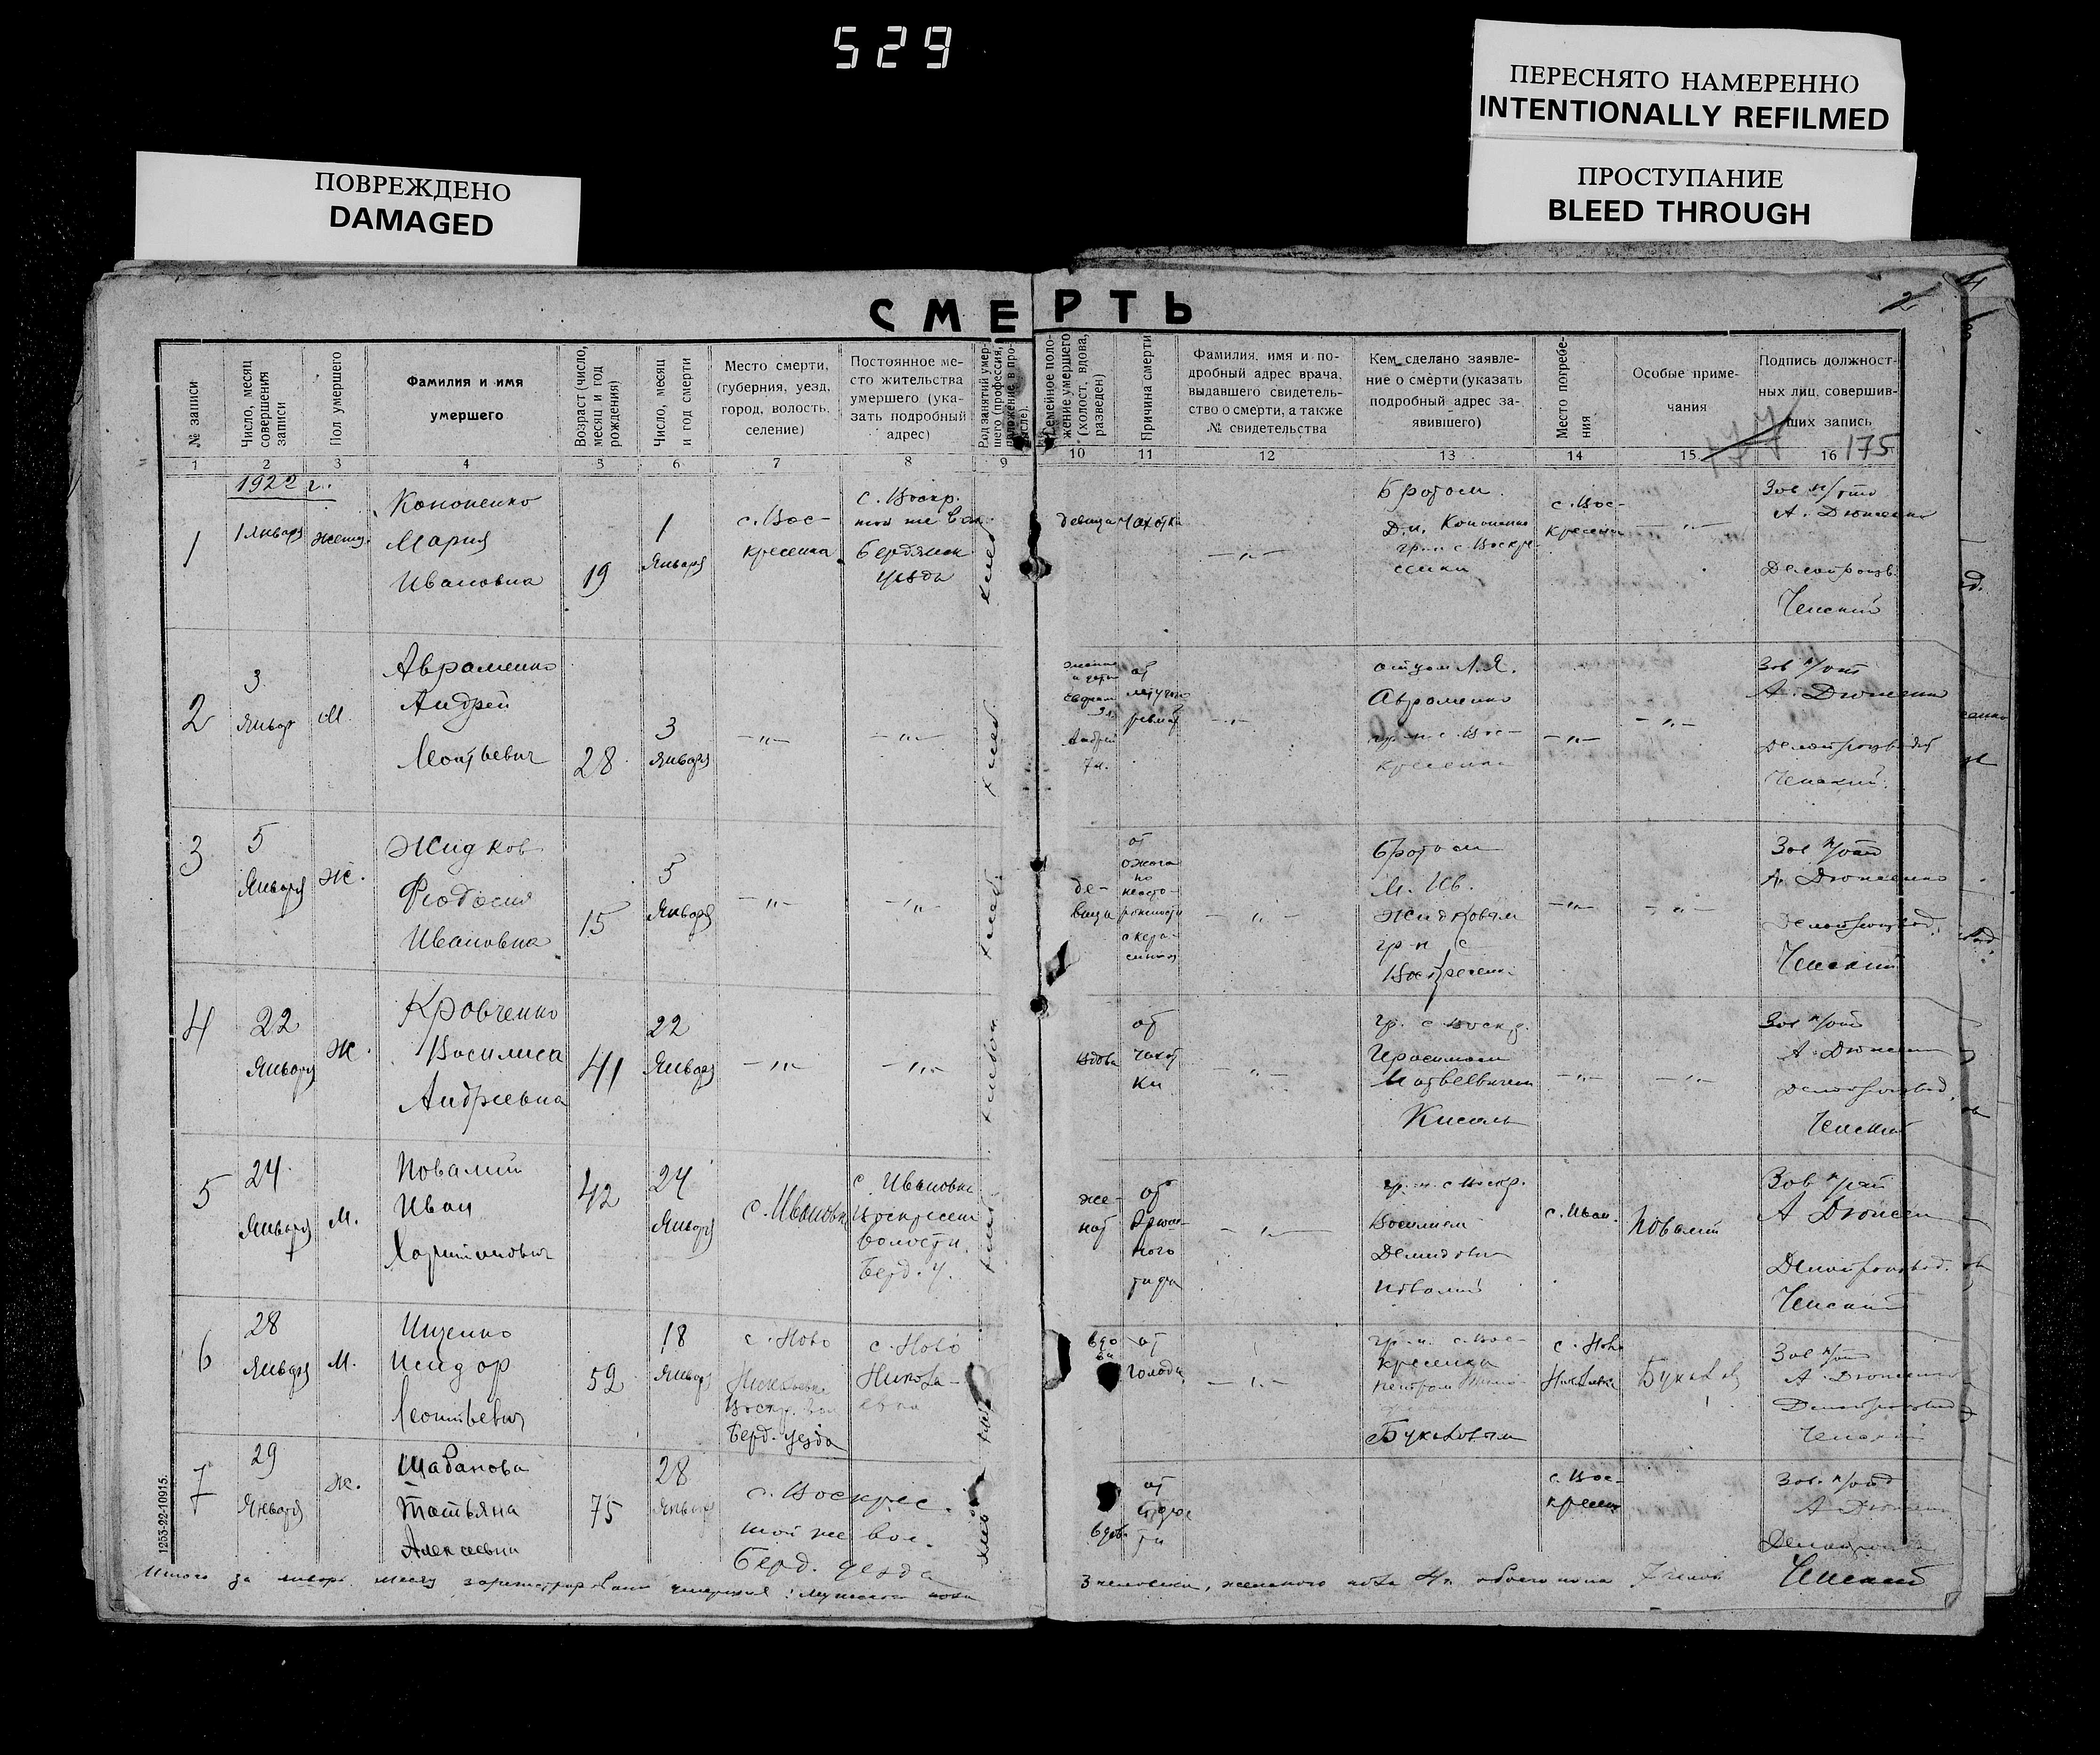 529
ПЕРЕСНЯТО НАМЕРЕННО
INTENTIONALLY REFILMED
ПРОСТУПАНИЕ
BLEED THROUGH
ПОВРЕЖДЕНО
DAMAGED
СМЕРТЬ
№ записи
Число, месяц совершения записи
Пол умершего
Фамилия и имя
умершего
Возраст (число, месяц и год рождения)
Число, месяц и год смерти
Место смерти,
(губерния, уезд,
город, волость,
селение)
Постоянное ме-
сто жительства
умершего (ука-
зать подробный
адрес)
Род занятий умер-
шего (профессия,
положение в про-
Семейное поло-
жение умершего
(холост, вдова,
разведен)
Причина смерти
Фамилия, имя и по-
дробный адрес врача,
выдавшего свидетель-
ство о смерти, а также
№ свидетельства
Кем сделано заявле-
ние о смерти (указать
подробный адрес за-
явившего)
Место погребе-
ния
Особые приме-
чания
Подпись должност-
ных лиц, совершив-
ших запись
177
175
1 2 3 4 5 6 7 8 9 10 11 12 13 14 15 16
1922 г.
1
1 января
женщ.
Кононенко
Мария
Ивановна
19
1
Января
с. Вос-
кресенка
с. Воскр.
той же вол.
Бердянск
уезда
девица
чахотка
Братом
Д.И. Кононенко
гр-н с Воскре-
сенки
с. Вос-
кресенка
Зав п/отд
А. Дюженко
Делопроизв.
Ченский
2
3
Январ
М.
Авраменко
Андрей
Леонтьевич
28
3
Января
отцом Л.Я.
Авраменко
гр-н с. Вос-
кресенка
Зав п/отд
А. Дюженко
Ченский
3
5
Января
Ж.
Жидков
Феодосия
Ивановна
15
5
Января
де-
вица
от
ожога
по
неосто-
рожности
с керо-
сином
Братом
И. Ив.
Жидковым
гр-н с
Воскресен.
Зав п/отд
А. Дюженко
Делопроизвод.
Ченский
4
22
Января
Ж.
Кравченко
Василиса
Андреевна
41
22
Января
вдова
от
чахот
ки
гр. с Воскр.
Герасимом
Матвеевичем
Кисель
Зав п/отд
А. Дюженко
Делопроизвод.
Ченский
5
24
Января
М.
Повалий
Иван
Харитонович
42
24
Январ
с. Ивановка
с. Ивановка
Воскресен
волости
Берд. у.
же-
нат
от
брюш-
ного
тифа
гр-н. с Воскр.
Василием
Демидович
Повалий
с. Иван.
Повалий
Зав п/отд
А Дюженко
Делопроизвод.
Ченский
6
28
Января
М.
Ищенко
Исидор
Леонтьевич
59
18
Январ
с. Ново
Николаевка
Воскр. вол
Берд. уезда
с. Ново
Никола-
евка
вдо
вец
от
голода
гр-н. с. Вос-
кресенка
Букаловым
с. Ново
Николаевка
Зав п/отд
А. Дюженко
Делопроизвод
Ченский
7
29
Января
Ж.
Шабанова
Татьяна
Алексеевна
75
28
Январ
с. Воскрес.
той же вол.
Берд. уезда
вдова
от
старос
ти
с. Вос-
кресен
Зав. п/отд
А Дюженко
Ченский
Итого за январь месяц зарегистрировано умерших: мужского пола
3 человека, женского пола 4 ч. обоего пола 7 челов
1253-22-10915.